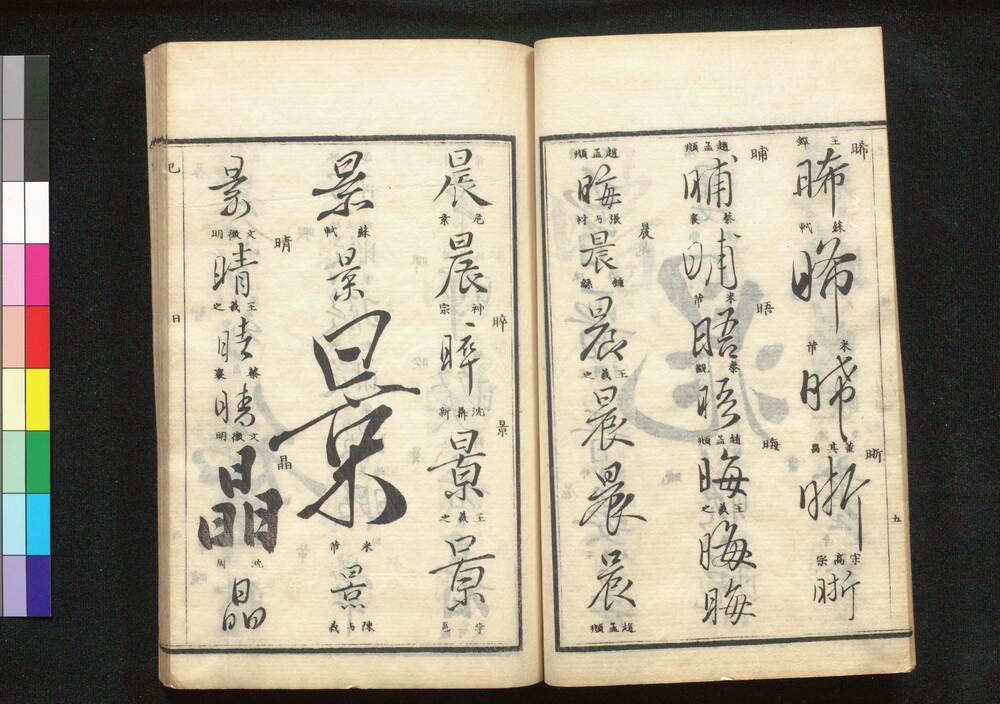 晞
王鐸
晞
蘇軾
晞
米芾
晞
晣
董其昌
晣
宋高宗
晣
晡
趙孟頫
晡
蔡襄
晡
晤
米芾
晤
秦觀
晤
晦
趙孟頫
晦
王羲之
晦
晦
趙孟頫
晦
晨
張与材
晨
鍾繇
晨
王羲之
晨
晨
晨
趙孟頫
五
晨
危素
晨
神宗
晬
晬
沈鼎新
景
景
王羲之
景
李邕
景
蘇軾
景
景
米芾
景
陳与義
景
文徵明
晴
晴
王羲之
晴
蔡襄
晴
文徵明
晶
晶
沈周
晶
巳
日